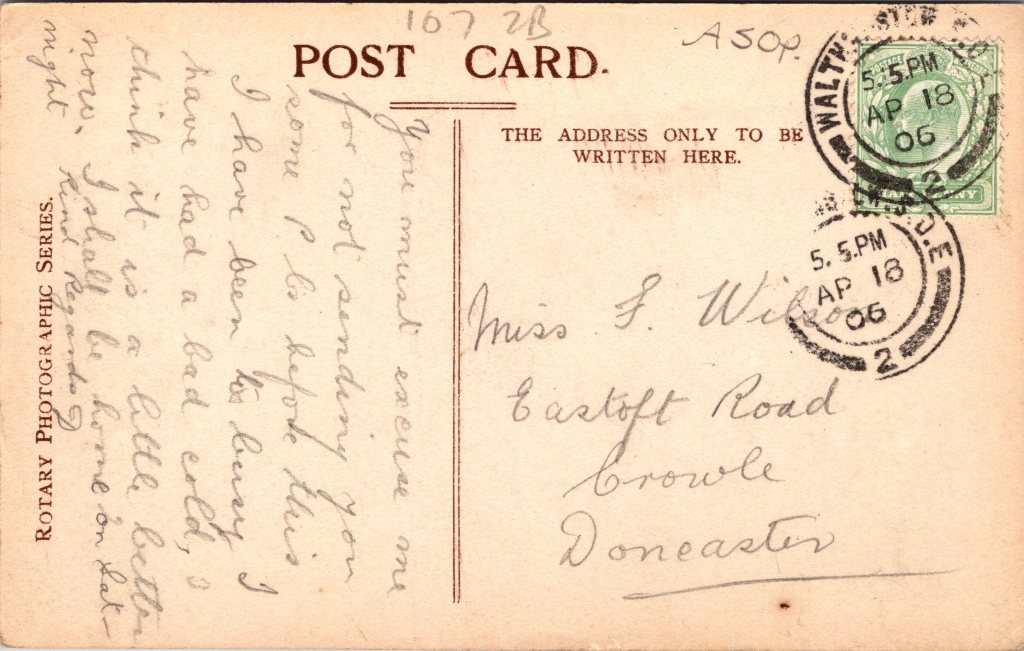 107 2B
A50p.
POST CARD.
THE ADDRESS ONLY TO BE
WRITTEN HERE.
WALTHAMSTOW S.O.
5. 5.PM
AP 18
06
2
S.O.E
5. 5.PM
AP 18
06
2
You must excuse me
for not sending you
some p Cs before this
I have been to busy I
have had a bad cold,
think it is a little better
now. I shall be home on Sat-
night
Kind Regards
Miss F. Wilson
Eastoft Road
Crowle
Doncaster
ROTARY PHOTOGRAPHIC SERIES.